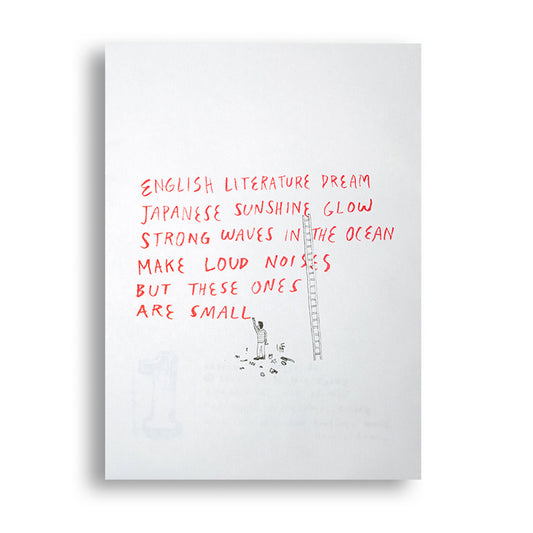 ENGLISH LITERATURE DREAM
JAPANESE SUNSHINE GLOW
STRONG WAVES IN THE OCEAN
MAKE LOUD NOISES
BUT THESE ONES
ARE SMALL
1